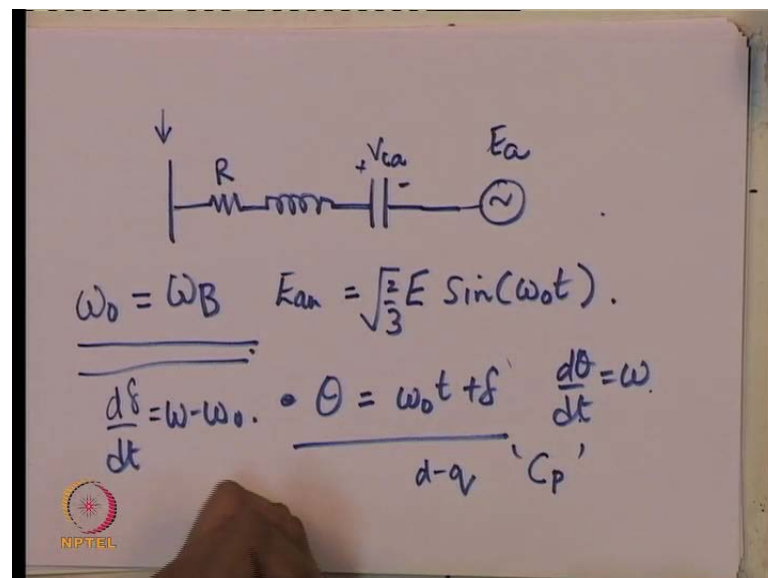 Ea
Vca
+ -
R
~
ω₀ = ω_B Ean = √(2/3) E Sin(ω₀t).
dδ/dt = ω - ω₀. • θ = ω₀t + δ dθ/dt = ω.
d-q 'Cp'
NPTEL